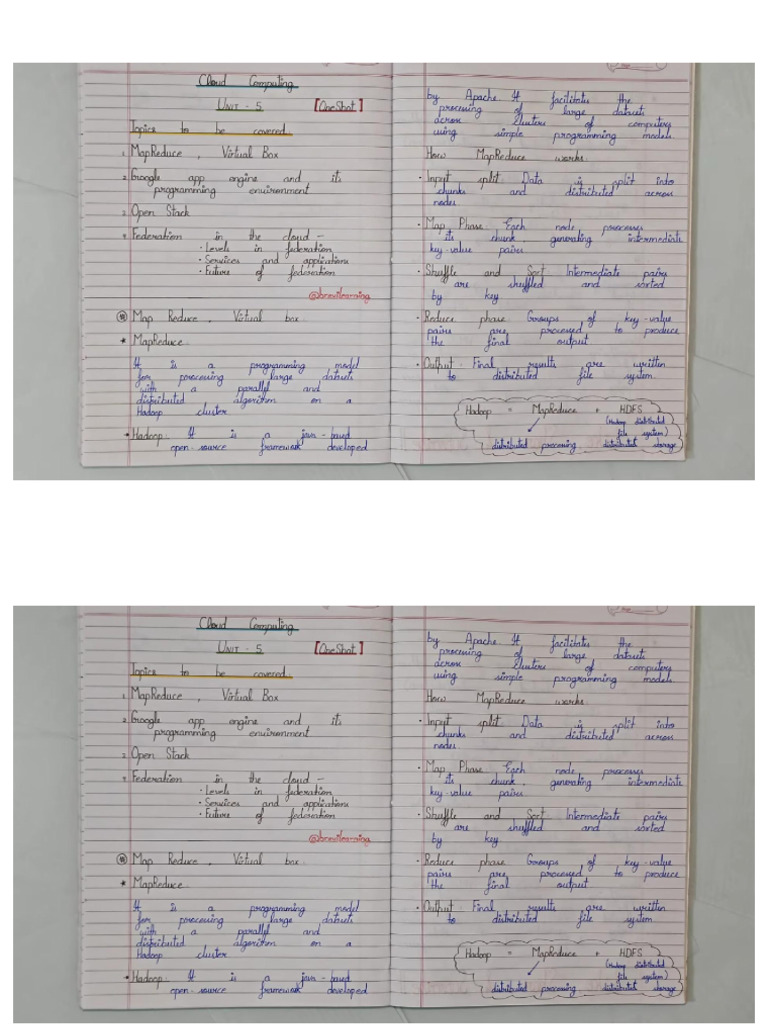 Cloud Computing
Unit - 5 [OneShot]
Topics to be covered
1. MapReduce, Virtual Box
2. Google app engine and its
programming environment
3. Open Stack
4. Federation in the cloud –
• Levels in federation
• Services and applications
• Future of federation
@brevilearning
Map Reduce, Virtual box
* MapReduce
It is a programming model
for processing large datasets
with a parallel and
distributed algorithm on a
Hadoop cluster
* Hadoop: It is a java-based
open-source framework developed
by Apache. It facilitates the
processing of large datasets
across clusters of computers
using simple programming models.
How MapReduce works:
• Input split: Data is split into
chunks and distributed across
nodes
• Map Phase: Each node processes
its chunk, generating intermediate
key-value pairs
• Shuffle and Sort: Intermediate pairs
are shuffled and sorted
by key
• Reduce phase: Groups of key-value
pairs are processed to produce
the final output
• Output: Final results are written
to distributed file system.
Hadoop = MapReduce + HDFS
(Hadoop distributed
file system)
distributed processing distributed storage
Cloud Computing
Unit - 5 [OneShot]
Topics to be covered
1. MapReduce, Virtual Box
2. Google app engine and its
programming environment
3. Open Stack
4. Federation in the cloud –
• Levels in federation
• Services and applications
• Future of federation
@brevilearning
Map Reduce, Virtual box
* MapReduce
It is a programming model
for processing large datasets
with a parallel and
distributed algorithm on a
Hadoop cluster
* Hadoop: It is a java-based
open-source framework developed
by Apache. It facilitates the
processing of large datasets
across clusters of computers
using simple programming models.
How MapReduce works:
• Input split: Data is split into
chunks and distributed across
nodes
• Map Phase: Each node processes
its chunk, generating intermediate
key-value pairs
• Shuffle and Sort: Intermediate pairs
are shuffled and sorted
by key
• Reduce phase: Groups of key-value
pairs are processed to produce
the final output
• Output: Final results are written
to distributed file system.
Hadoop = MapReduce + HDFS
(Hadoop distributed
file system)
distributed processing distributed storage